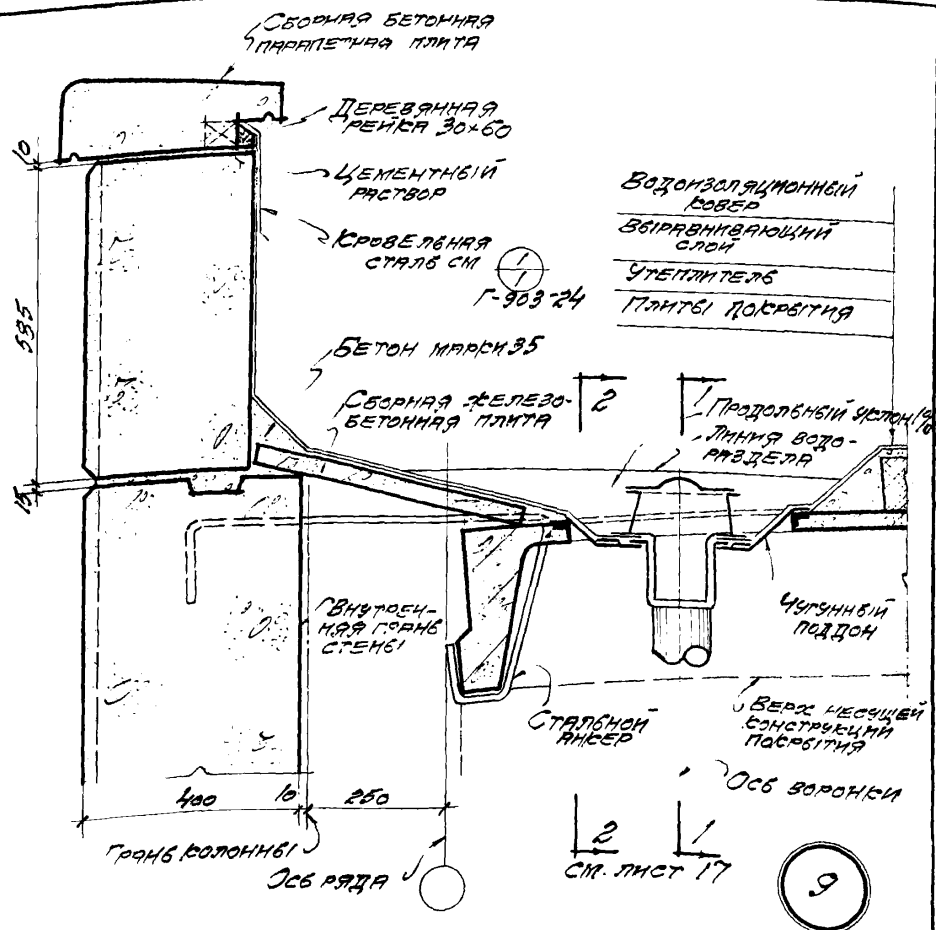 СБОРНАЯ БЕТОННАЯ
ПАРАПЕТНАЯ ПЛИТА
ДЕРЕВЯННАЯ
РЕЙКА 30×60
ЦЕМЕНТНЫЙ
РАСТВОР
КРОВЕЛЬНАЯ
СТАЛЬ СМ
1
1
Г-903-24
ВОДОИЗОЛЯЦИОННЫЙ
КОВЕР
ВЫРАВНИВАЮЩИЙ
СЛОЙ
УТЕПЛИТЕЛЬ
ПЛИТЫ ПОКРЫТИЯ
10
585
15
БЕТОН МАРКИ 35
СБОРНАЯ ЖЕЛЕЗО-
БЕТОННАЯ ПЛИТА
2
1
ПРОДОЛЬНЫЙ УКЛОН 1%
ЛИНИЯ ВОДО-
РАЗДЕЛА
ВНУТРЕН-
НЯЯ ГРАНЬ
СТЕНЫ
ЧУГУННЫЙ
ПОДДОН
СТАЛЬНОЙ
АНКЕР
ВЕРХ НЕСУЩЕЙ
КОНСТРУКЦИИ
ПОКРЫТИЯ
ОСЬ ВОРОНКИ
400
10
250
ГРАНЬ КОЛОННЫ
ОСЬ РЯДА
2
1
СМ. ЛИСТ 17
9